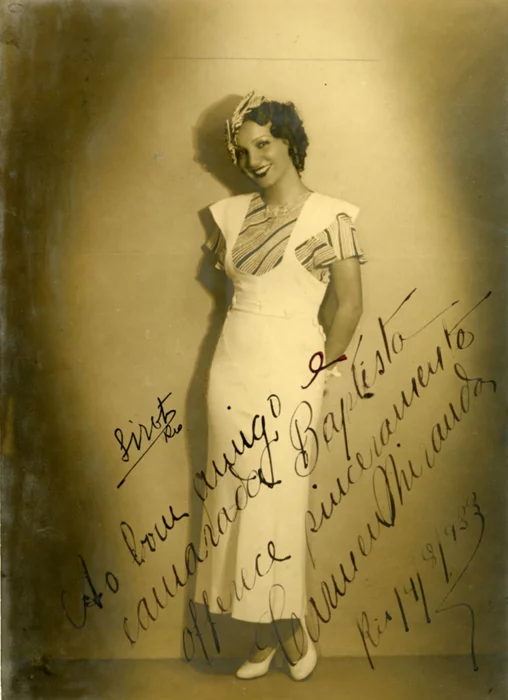 Sirot
Rio
Ao bom amigo e
camarada Baptista
offerece sinceramente
Carmen Miranda
Rio 14/8/933